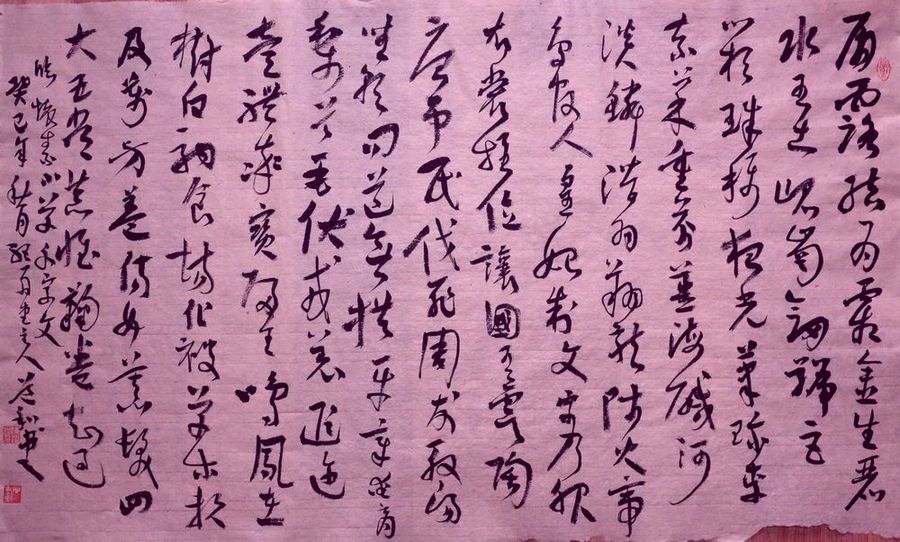 致雨露結為霜金生麗
水玉出崑岡劍號巨
闕珠稱夜光菓珍李
柰菜重芥薑海鹹河
淡鱗潛羽翔龍師火帝
鳥官人皇始制文字乃服
衣裳推位讓國有虞陶
唐弔民伐罪周發殷湯
坐朝問道垂拱平章愛育
黎首臣伏戎羌遐邇
壹體率賓歸王鳴鳳在
樹白駒食場化被草木賴
及萬方蓋此身髮四
大五常恭惟鞠養豈敢
臨懷素小草千字文
癸巳年秋月主人